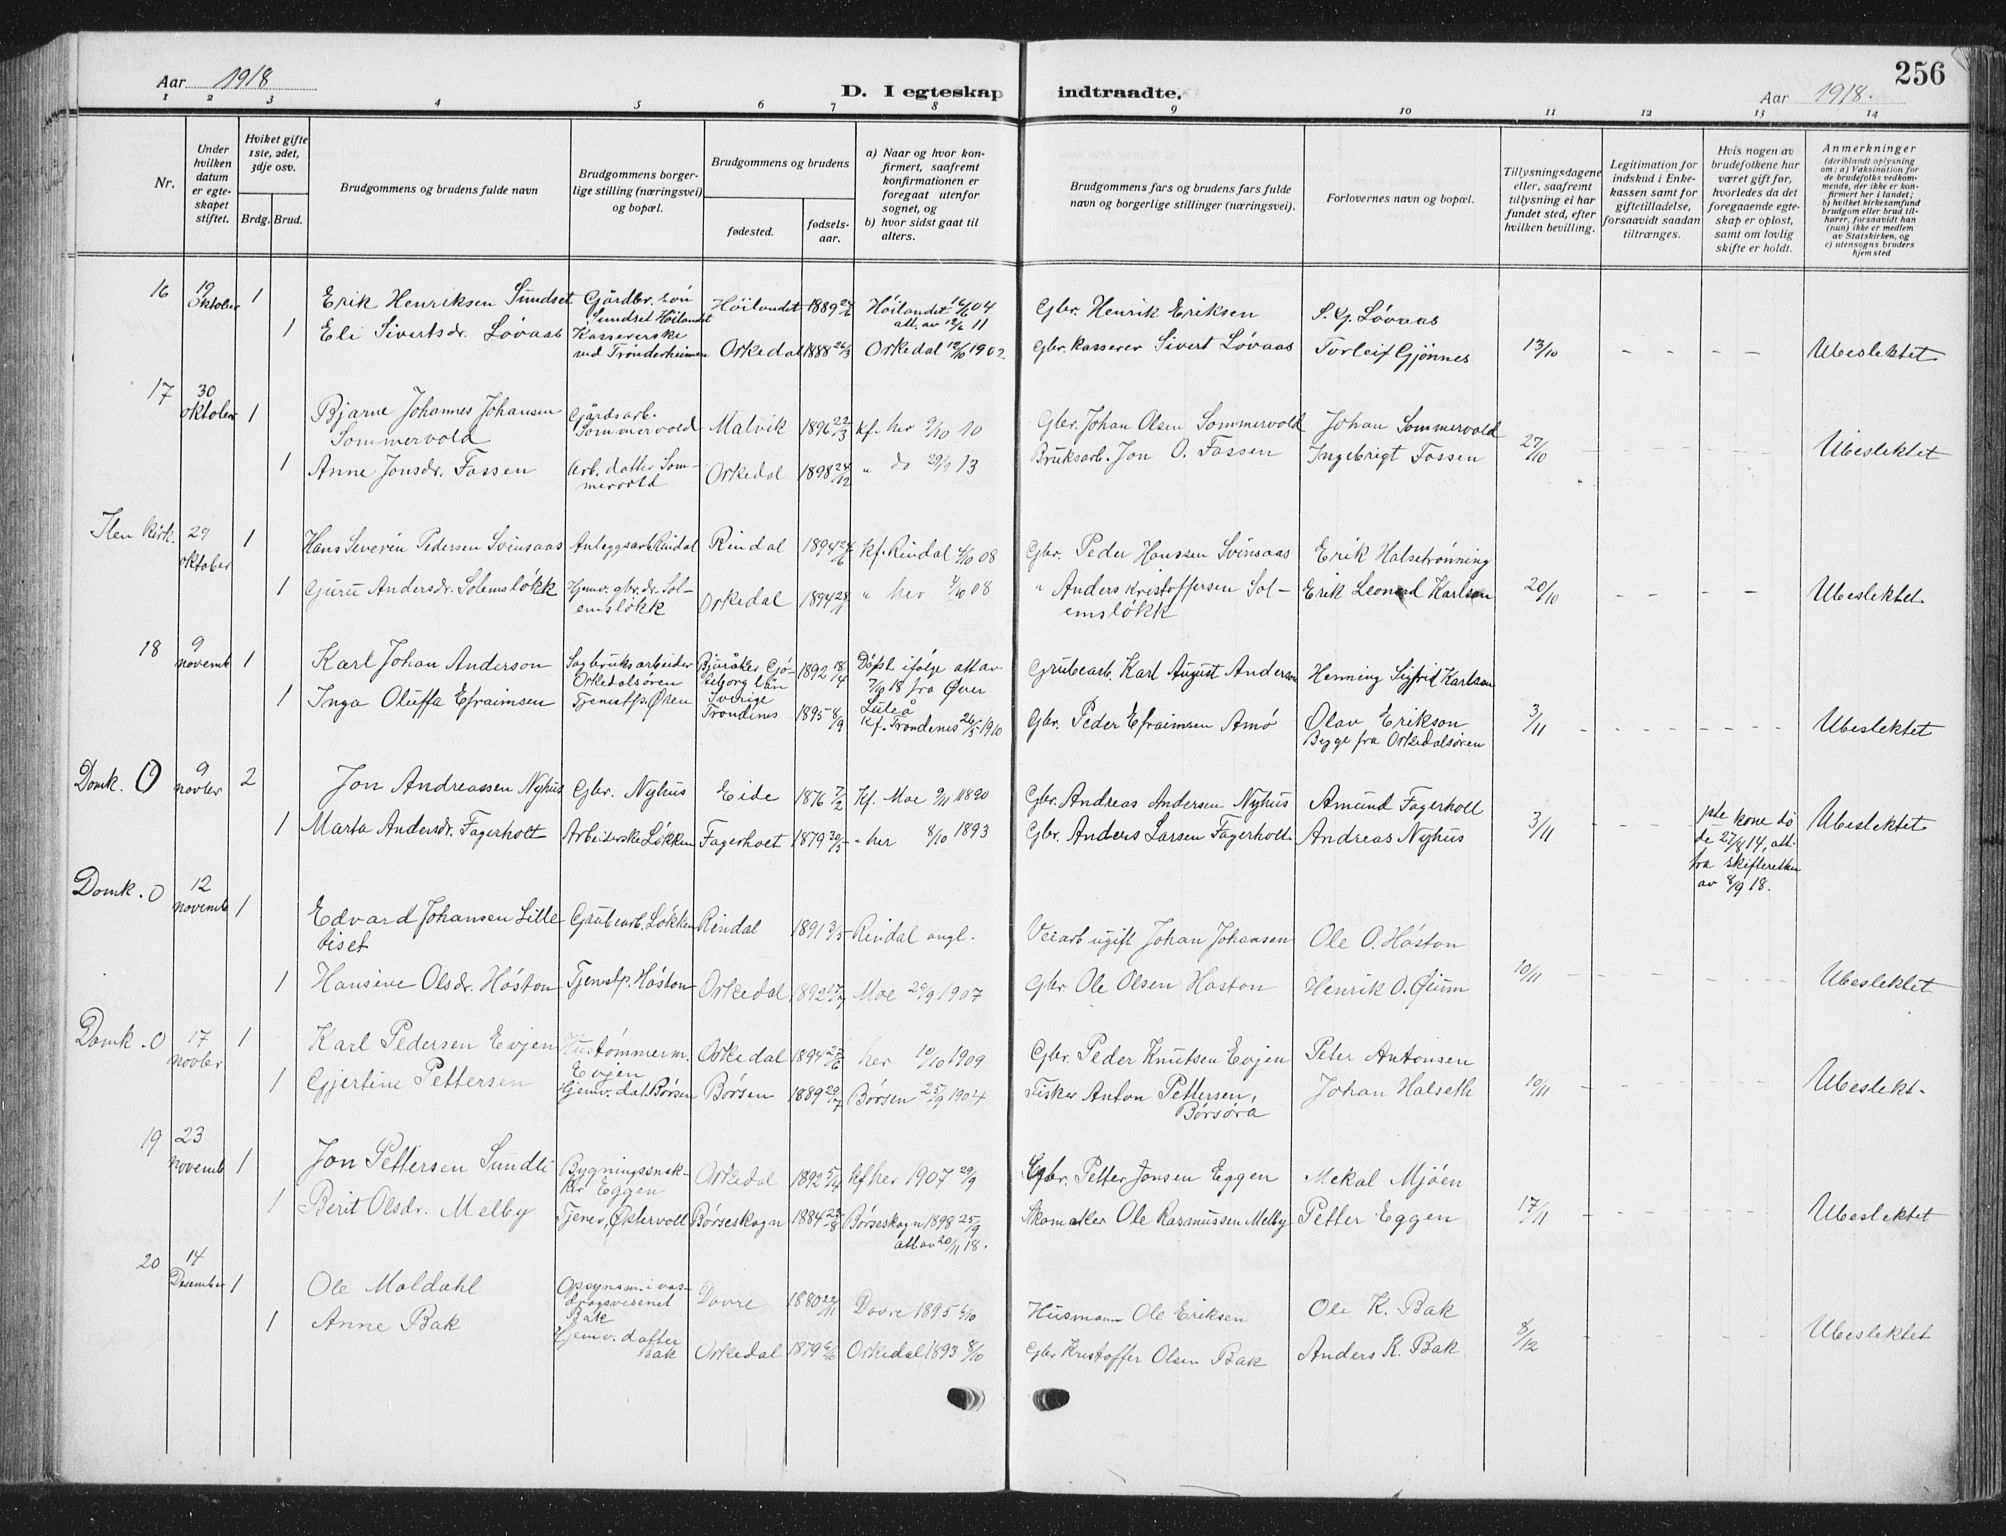 Aar 1918
D. I egteskap indtraadte.
256
Aar 1918.
1 2 3 4 5 6 7 8 9 10 11 12 13 14
Nr.
Under hvilken datum er egteskapet stiftet.
Hviket gifte 1ste, 2det, 3dje osv.
Brdg. Brud.
Brudgommens og brudens fulde navn
Brudgommens borgerlige stilling (næringsvei) og bopæl.
Brudgommens og brudens
fødested.
fødselsaar.
a) Naar og hvor konfirmert, saafremt konfirmationen er foregaat utenfor sognet, og
b) hvor sidst gaat til alters.
Brudgommens fars og brudens fars fulde navn og borgerlige stillinger (næringsvei).
Forlovernes navn og bopæl.
Tillysningsdagene eller, saafremt tillysning ei har fundet sted, efter hvilken bevilling.
Legitimation for indskud i Enkekassen samt for giftetilladelse, forsaavidt saadan tiltrænges.
Hvis nogen av brudefolkene har været gift før, hvorledes da det foregaaende egteskap er opløst, samt om lovlig skifte er holdt.
Anmerkninger
(deriblandt oplysning om: a) Vaksination for de brudefolks vedkommende, der ikke er konfirmert her i landet; b) hvilket kirkesamfund brudgom eller brud tilhører, forsaavidt han (hun) ikke er medlem av Statskirken, og c) utensogns bruders hjemsted
16 19 oktober 1 Erik Henriksen Sundset Gårdbr. søn Sundset Høilandet Høilandet 1889 Høilandet 04 att. av 12/2 11 Gbr. Henrik Eriksen S. G. Løvaas
1 Eli Sivertsdr. Løvaas Kassererske ved Trønderheimen Orkedal 1888 26/3 Orkedal 12/10 1902 Gbr. kasserer Sivert Løvaas Torleif Gjønnes 13/10 - - - - Ubeslektet
17 30 oktober 1 Bjarne Johannes Johansen Sommervold Gårdsarb. Sommervold Malvik 1896 22/3 kf. her 9/10 10 Gbr. Johan Olsen Sommervold Johan Sommervold
1 Anne Jonsdr. Fossen Arb. datter Sommervold Orkedal 1898 24/12 " do 13 Bruksarb. Jon O. Fossen Ingebrigt Fossen 27/10 - - - - Ubeslektet
Ilen Kirk. 29 oktober 1 Hans Severin Pedersen Svinsaas Anleggsarb. Rindal Rindal 1894 Kf. Rindal 4/10 08 Gbr. Peder Hanssen Svinsaas Erik Halsetrønning
1 Guru Andersdr. Solemsløkk Hjemv. gbr. dr. Solemsløkk Orkedal 1894 " her 4/10 08 " Anders Kristoffersen Solemsløkk Erik Leonard Karlsen 20/10 - - - - Ubeslektet
18 9 novemb 1 Karl Johan Anderson Sagbruksarbeider Orkedalsøren Gøteborg län Sverige 1892 18/4 Døpt ifølge att av 7/10 18 fra Øver Luleå Grubearb. Karl August Anderson Henning Sigfrid Karlson
1 Inga Oluffa Efraimsen Tjenestp. Øren Trondenes 1895 8/9 Kf. Trondenes 26/5 1910 Gbr. Peder Efraimsen Amø Olav Erikson Begge fra Orkedalsøren 3/11 - - - - Ubeslektet
Domk. 0 9 novbr 2 Jon Andreassen Nyhus Gbr. Nyhus Eide 1876 7/2 Kf. Moe 9/11 1890 Gbr. Andreas Andersen Nyhus Amund Fagerholt
1 Marta Andersdr. Fagerholt Arbeiderske Løkken Fagerholt 1879 30/5 " her 8/10 1893 Gbr. Anders Larsen Fagerholt Andreas Nyhus 3/11 - - 1ste kone døde 27/8 14, att. fra skifteretten av 8/9 18. Ubeslektet
Domk. 0 12 novemb 1 Edvard Johansen Lilletiset Grubearb. Løkken Rindal 1891 3/5 Rindal angl. Veiarb ugift Johan Johansen Ole O. Høston
1 Hansine Olsdr. Høston Tjenestp. Høston Orkedal 1892 Moe 29/9 1907 Gbr Ole Olsen Høston Henrik O. Øium 10/11 - - - - Ubeslektet
Domk. 0 17 novber 1 Karl Pedersen Evjen Hustømmerm. Evjen Orkedal 1894 her 10/10 1909 Gbr. Peder Knutsen Evjen Peter Antonsen
1 Gjertine Pettersen Hjemv. dat. Børsen Børsen 1889 29/7 Børsen 25/9 1904 Fisker Anton Pettersen, Børsøra Johan Halseth 10/11 - - - - Ubeslekt.
19 23 novemb 1 Jon Pettersen Sundli Bygningssnekker Eggen Orkedal 1892 5/4 kf her 1907 29/9 Gbr. Petter Jonsen Eggen Mekal Mjøen
1 Berit Olsdr. Melby Tjenev. Øktervoll Børseskogn 1884 Børseskogn 1898 25/9 att av 20/11 18. Skomaker Ole Rasmussen Melby Petter Eggen 17/11 - - - - Ubeslektet
20 14 Desember 1 Ole Moldahl Opsynsm. i vasdragsvesenet Bak Dovre 1880 Dovre 1895 6/10 Husmann Ole Eriksen Ole K. Bak
1 Anne Bak Hjemv. datter Bak Orkedal 1879 Orkedal 1893 8/10 Gbr Kristoffer Olsen Bak Anders K. Bak 8/12 - - - - Ubeslektet